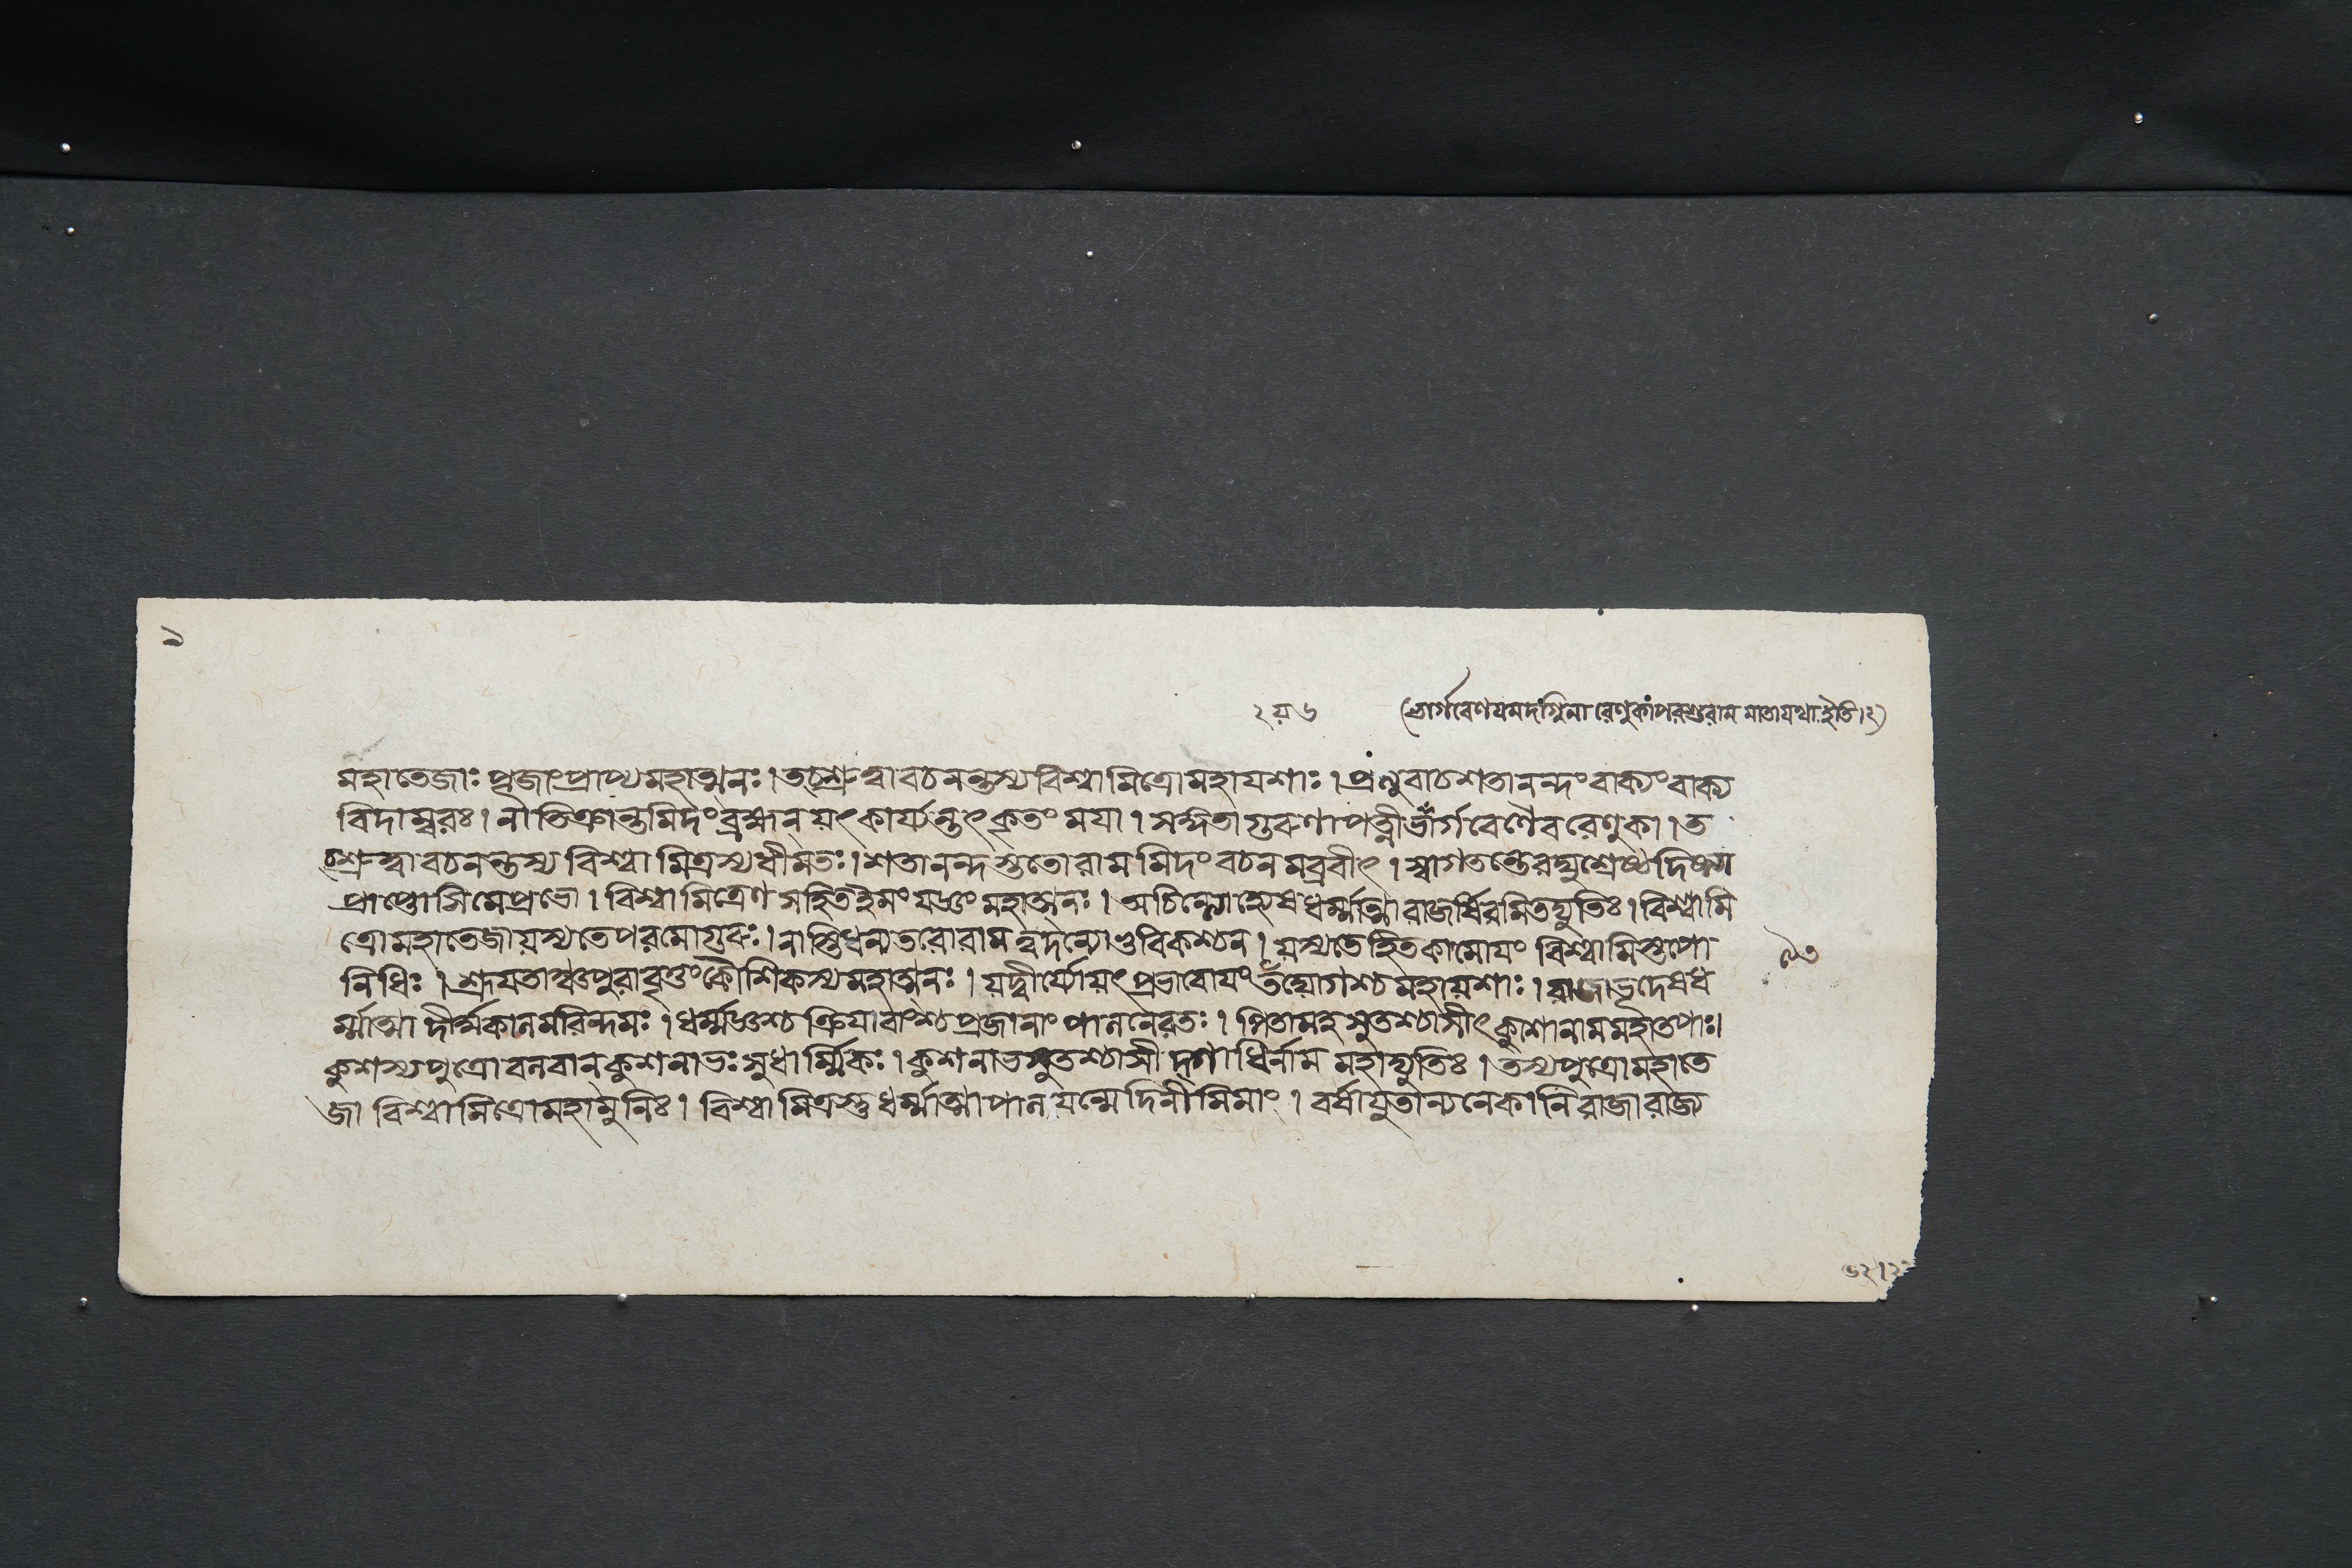 ২য় ৬ (ভার্গবেণ যমদগ্নিনা রেণুকা পরশুরাম মাতা যথা ইতি।২)
মহাতেজাঃ পূজাং প্রাপ্য মহাত্মনঃ। তচ্শ্রুত্বা বচনন্তস্য বিশ্বামিত্রো মহাযশাঃ। প্রত্যুবাচ শতানন্দং বাক্যং বাক্য
বিদাম্বরঃ। নাতিক্রান্তমিদং ব্রহ্মন্ যৎ কার্য্যন্তৎ কৃতং ময়া। সঙ্গতা গুরুণা পত্নী ভার্গবেণৈব রেণুকা। ত
চ্শ্রুত্বা বচনন্তস্য বিশ্বামিত্রস্য ধীমতঃ। শতানন্দস্ততো রামমিদং বচনমব্রবীৎ। স্বাগতন্তে রঘুশ্রেষ্ঠ দিষ্ট্যা
প্রাপ্তোসি মে প্রভো। বিশ্বামিত্রেণ সহিত ইমং যজ্ঞং মহাত্মনঃ। অচিন্ত্যোহ্যেষ ধর্ম্মাত্মা রাজর্ষিরমিতদ্যুতিঃ। বিশ্বামি
ত্রো মহাতেজা যস্য তে পরমো গুরুঃ। নাস্তি ধন্যতরো রাম ত্বদন্যো ভুবি কশ্চন। যস্য তে হিতকামোয়ং বিশ্বামিস্তপো
নিধিঃ। শ্রূয়তাঞ্চ পুরাবৃত্তং কৌশিকস্য মহাত্মনঃ। যদ্বীর্য্যোয়ং প্রভাবোয়ং তদ্যোগশ্চ মহাযশাঃ। রাজাভূদেষ ধ
র্ম্মাত্মা দীর্ঘকালমরিন্দমঃ। ধর্ম্মজ্ঞশ্চ ক্রিয়াবাংশ্চ প্রজানাং পালনে রতঃ। পিতামহ সুতশ্চাসীৎ কুশোনাম মহাতপাঃ।
কুশস্য পুত্রো বলবান্ কুশনাভঃ সুধার্ম্মিকঃ। কুশনাভ সুতশ্চাসীদ্গাধির্নাম মহাদ্যুতিঃ। তস্য পুত্রো মহাতে
জা বিশ্বামিত্রো মহামুনিঃ। বিশ্বামিত্রস্তু ধর্ম্মাত্মা পালয়ন্মেদিনীমিমাং। বর্ষাযুতান্যনেকানি রাজা রাজ্য